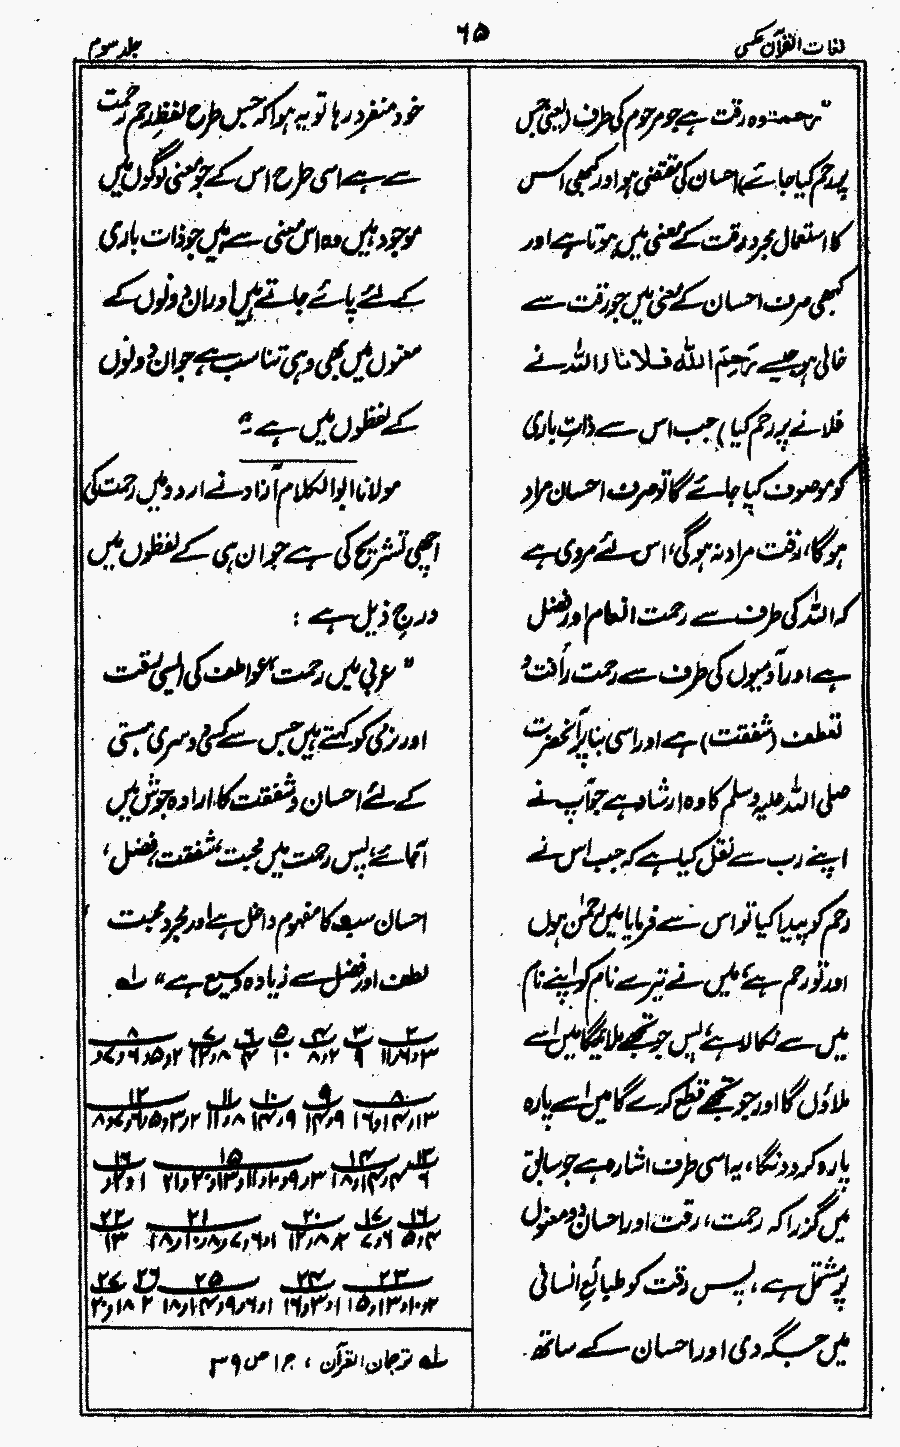 لغات القرآن عکسی
۶۵
جلد سوم
"رحمت وہ رقت ہے جو مرحوم کی طرف (یعنی جس
پر رحم کیا جائے) احسان کی مقتضی ہو اور کبھی اس
کا استعمال مجرد رقت کے معنی میں ہوتا ہے اور
کبھی صرف احسان کے معنی میں جو رقت سے
خالی ہو جیسے رَحِمَ اللہُ فُلَانًا (اللہ نے
فلانے پر رحم کیا) جب اس سے ذاتِ باری
کو موصوف کیا جائے گا تو صرف احسان مراد
ہوگا، رقت مراد نہ ہوگی، اس لئے مروی ہے
کہ اللہ کی طرف سے رحمت انعام اور فضل
ہے اور آدمیوں کی طرف سے رحمت رأفت و
تعطف (شفقت) ہے اور اسی بنا پر آنحضرت
صلی اللہ علیہ وسلم کا وہ ارشاد ہے جو آپ نے
اپنے رب سے نقل کیا ہے کہ جب اس نے
رحم کو پیدا کیا تو اس سے فرمایا میں رحمٰن ہوں
اور تو رحم ہے، میں نے تیرے نام کو اپنے نام
میں سے نکالا ہے، پس جو تجھے ملائیگا میں اسے
ملاؤں گا اور جو تجھے قطع کرے گا میں اسے پارہ
پارہ کر دونگا، یہ اسی طرف اشارہ ہے جو سابق
میں گزرا کہ رحمت، رقت اور احسان دو معنوں
پر مشتمل ہے، پس رقت کو طبائعِ انسانی
میں جگہ دی اور احسان کے ساتھ
خود منفرد رہا تو یہ ہوا کہ جس طرح لفظِ رحم رحمت
سے ہے اسی طرح اس کے جو معنی لوگوں میں
موجود ہیں وہ اس معنی سے ہیں جو ذات باری
کے لئے پائے جاتے ہیں اور ان دونوں کے
معنوں میں بھی وہی تناسب ہے جو ان دونوں
کے لفظوں میں ہے"
مولانا ابوالکلام آزاد نے اردو میں رحمت کی
اچھی تشریح کی ہے جو ان ہی کے لفظوں میں
درجِ ذیل ہے:
"عربی میں رحمت" عواطف کی ایسی رقت
اور نرمی کو کہتے ہیں جس سے کسی دوسری ہستی
کے لئے احسان و شفقت کا ارادہ جوش میں
آجائے، پس رحمت میں محبت، شفقت، فضل،
احسان سب کا مفہوم داخل ہے اور مجرد محبت
لطف اور فضل سے زیادہ وسیع ہے" لہ
۲ ۳ ۴ ۵ ۶ ۷ ۸
۸ ۹ ۱۰ ۱۱ ۱۲
۱۳ ۱۴ ۱۵ ۱۶
۱۶ ۱۷ ۲۰ ۲۱ ۲۲
۲۳ ۲۴ ۲۵ ۲۶ ۲۷
لہ ترجمان القرآن، ج ۱ ص ۳۹